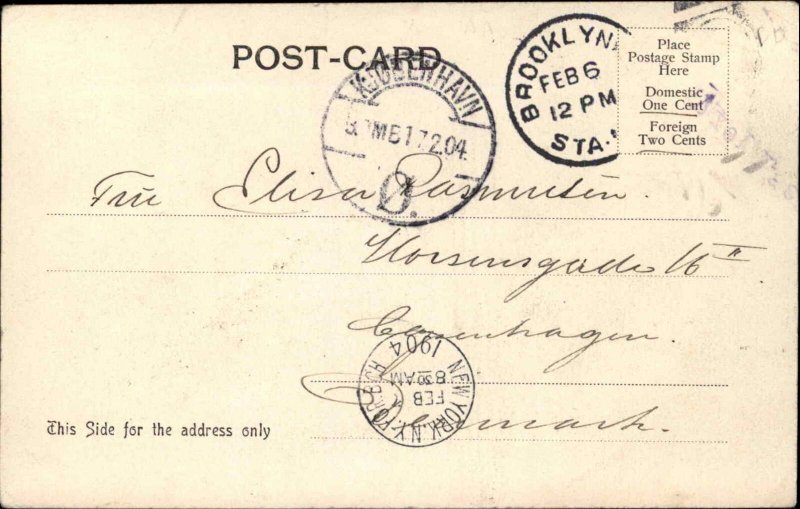 POST-CARD
KJØBENHAVN
17.2.04
Ø.
BROOKLYN
FEB 6
12 PM
STA.
Place
Postage Stamp
Here
Domestic
One Cent
Foreign
Two Cents
Fru Elisa Rasmussen.
Horsensgade 16 II
Copenhagen
Denmark.
NEW YORK, N.Y.
FEB
8 30 AM
1904
This Side for the address only